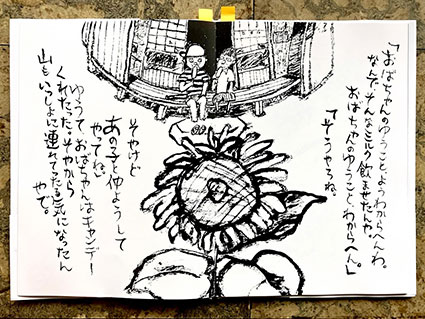 「おばちゃんのゆうこと、ようわからへんわ。
なんで、そんなミルク飲ませたんか、
おばちゃんのゆうこと、わからへん。」
「そうやろね。
そやけど
あの子と仲ようして
やってね。
ゆうて、おばちゃんはキャンデー
くれたた。そやから
山もいっしょに連れてったる気になったん
やで。